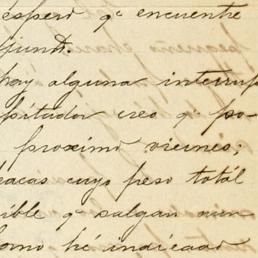 espero q. encuentre
hay alguna interrup
pitudor creo q. po-
proximo viernes;
sacas cuyo peso total
ible q. salgan
como hé indicado